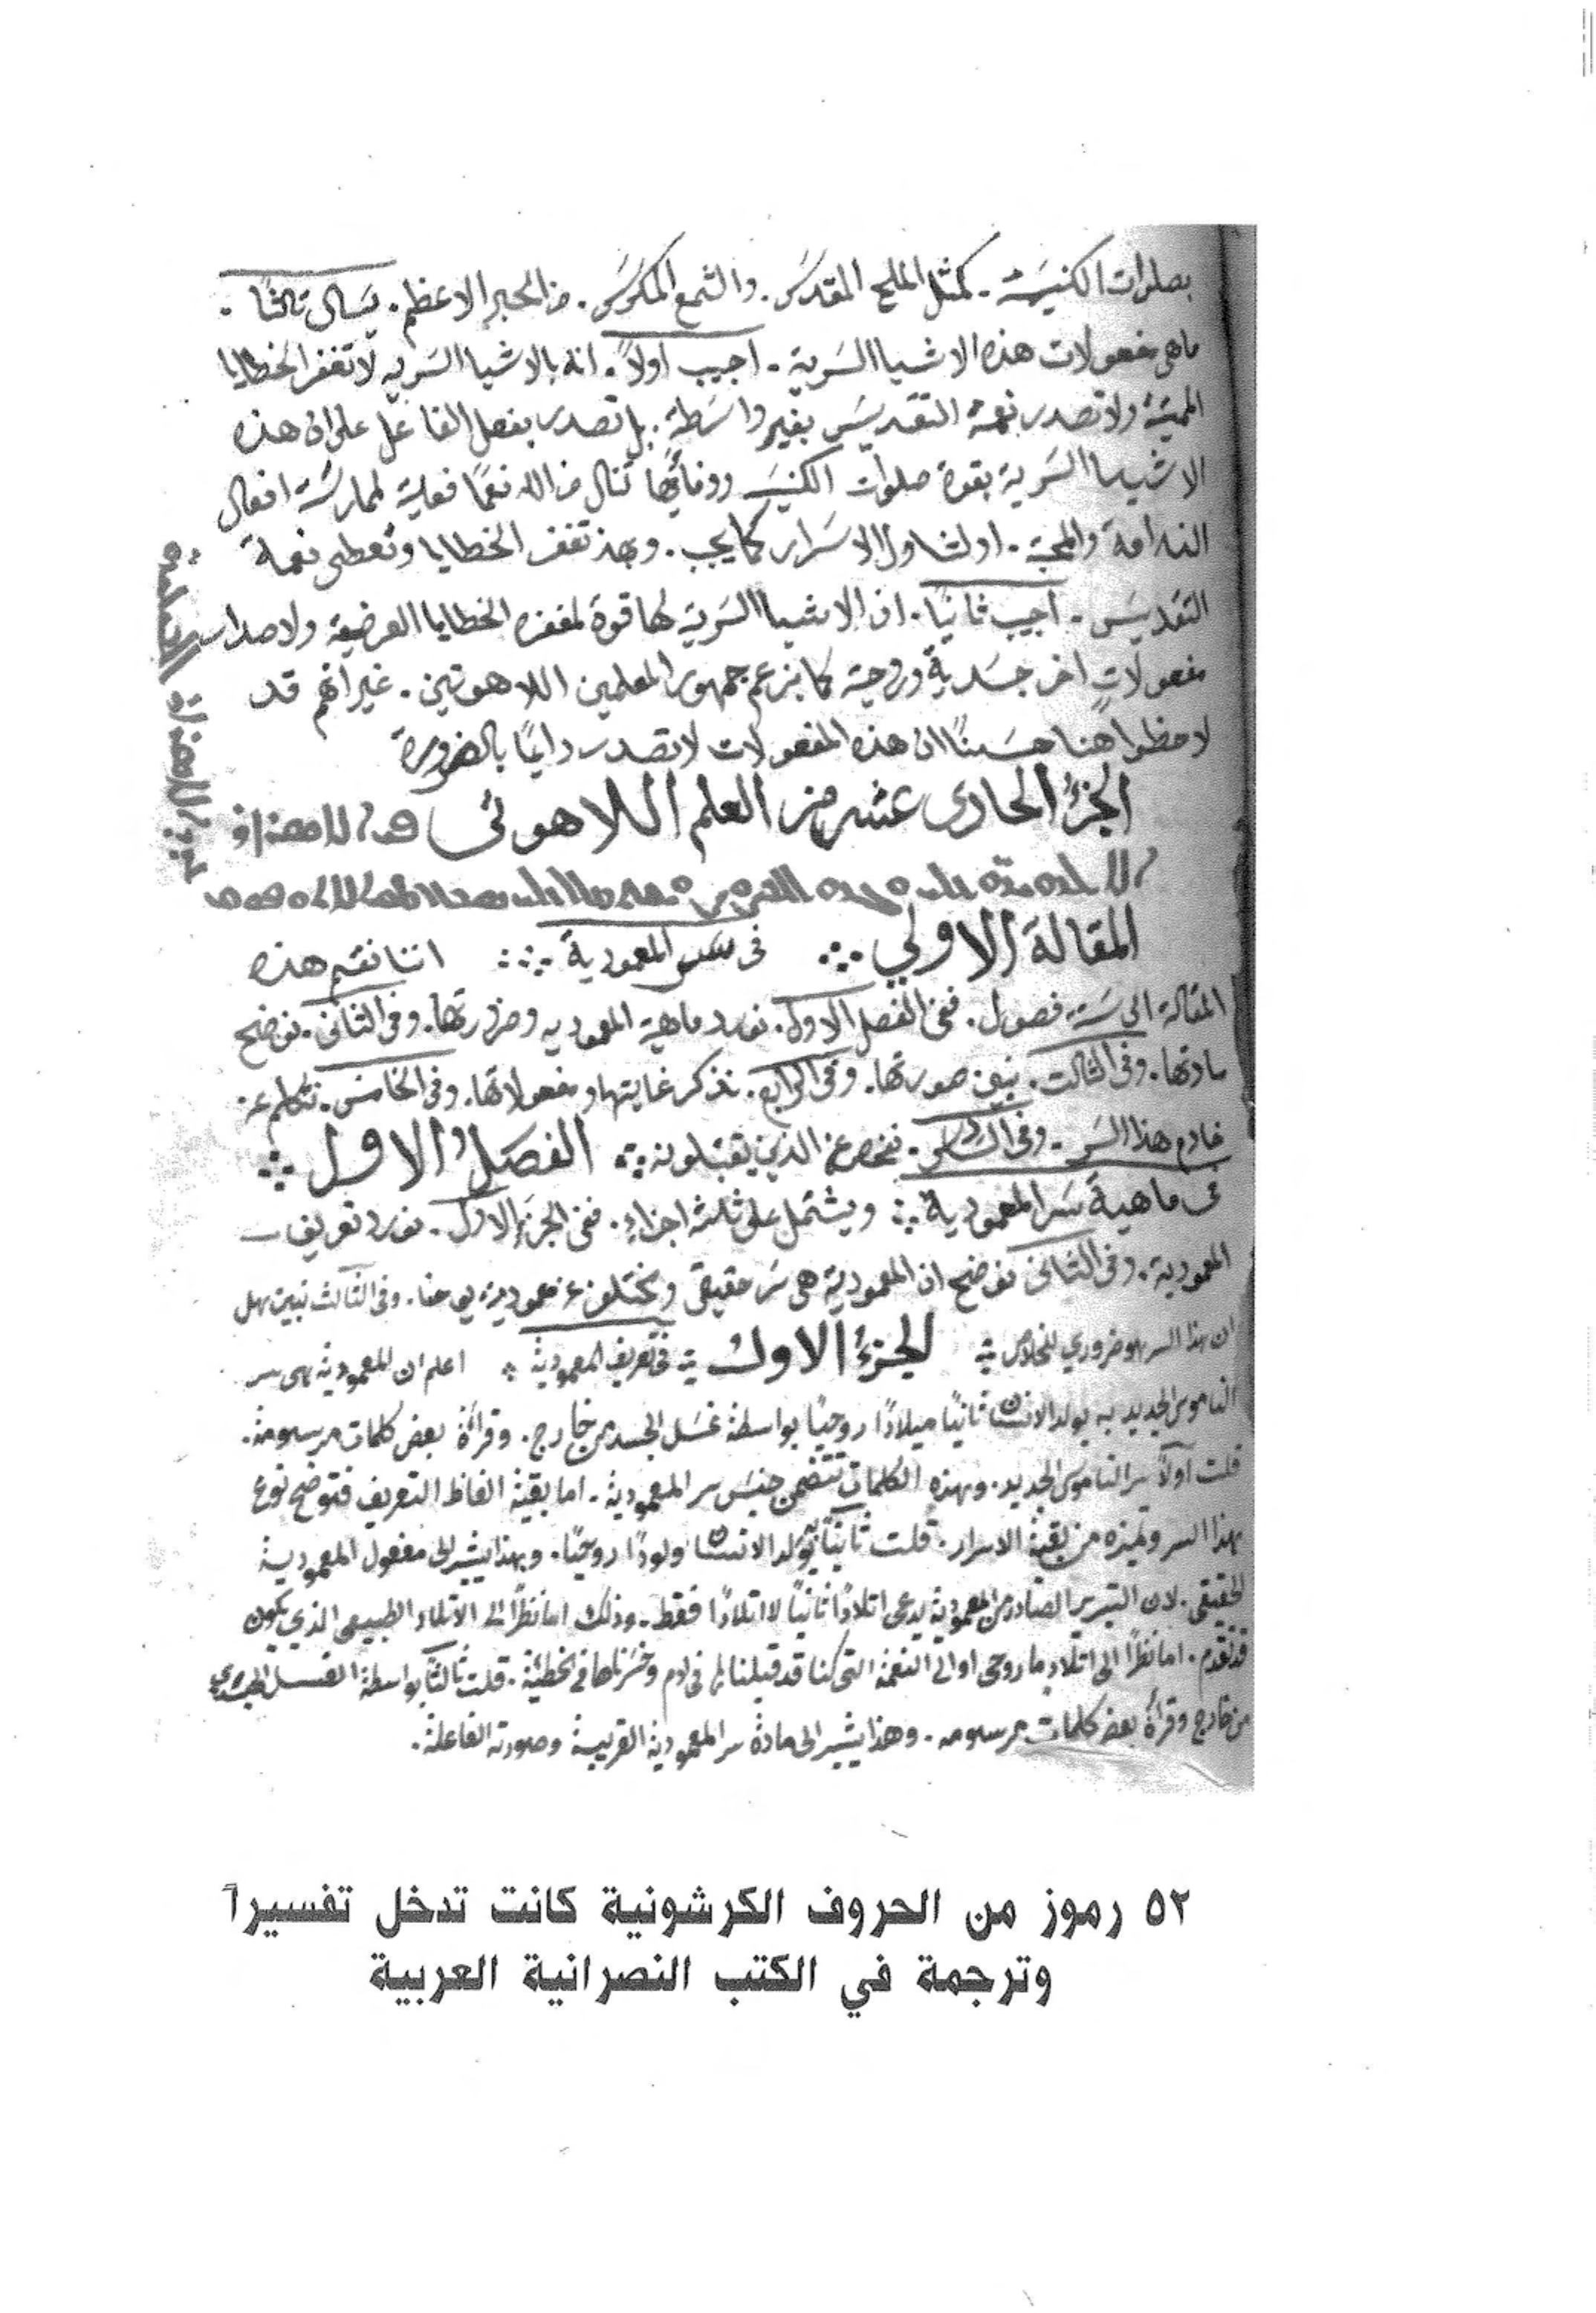 بصلوات الكنيسة - كمثل الملح المقدس . والشمع المكرس . من الحبر الاعظم . يسال ثالثًا -
ما هي مفعولات هذه الاشيا السرية - اجيب اولاً . انه بالاشيا السريه لا تغفر الخطايا
المميتة ولا تصدر نعمة التقديس بغير واسطة . بل تصدر بفعل الفاعل على ان هذه
الاشيا السرية بقوة صلوات الكنيسة تنال من الله نعمًا فعلية لممارسة افعال
الندامة والمحبة - او لتناول الاسرار كما يجب . وبهذا تغفر الخطايا وتعطى نعمة
التقديس - اجيب ثانيًا . ان الاشيا السرية لها قوة لمغفرة الخطايا العرضية ولاصدار
مفعولات اخر جسدية وروحية كما يزعم جمهور المعلمين اللاهوتيين . غير انهم قد
لاحظوا هنا حسنًا ان هذه المفعولات لا تصدر دايمًا بالضرورة
الجزء الحادي عشر من العلم اللاهوتي
المقالة الاولي ∴ في سر المعمودية ∴ اننا نقسم هذه
المقالة الى ستة فصول . ففي الفصل الاول . نورد ماهية المعمودية وضرورتها . وفي الثاني . نوضح
مادتها . وفي الثالث . نبين صورتها . وفي الرابع . نذكر غايتها ومفعولاتها . وفي الخامس . نتكلم عن
خادم هذا السر - وفي السادس . نفحص عن الذين يقبلونه ∴ الفصل الاول ∴
في ماهية سر المعمودية ∴ ويشتمل على ثلثة اجزاء . ففي الجزء الاول . نورد تعريف
المعمودية . وفي الثاني نوضح ان المعمودية هي سر حقيقي وتختلف عن معمودية يوحنا . وفي الثالث نبين هل
ان هذا السر هو ضروري للخلاص ∴ الجزء الاول في تعريف المعمودية ∴ اعلم ان المعمودية هي سر
الناموس الجديد به يولد الانسان ثانيًا ميلادًا روحيًا بواسطة غسل الجسد من خارج . وقرأة بعض كلمات مرسومة .
قلت اولاً سر الناموس الجديد . وبهذه الكلمات تتضمن جنس سر المعمودية . اما بقية الفاظ التعريف فتوضح نوع
هذا السر وتميزه من بقية الاسرار . قلت ثانيًا يولد الانسان ولودًا روحيًا . وبهذا يشير الى مفعول المعمودية
الحقيقي . لان التبرير الصادر من المعمودية يدعى اتلادًا ثانيًا لا اتلادًا فقط . وذلك اما نظرًا الى الاتلاد الطبيعي الذي يكون
قد تقدم . اما نظرًا الى اتلاد ما روحي او الى النعمة التي كنا قد قبلناها في ادم وخسرناها في الخطيئة . قلت ثالثًا بواسطة الغسل الجسدي
من خارج وقرأة بعض كلمات مرسومه . وهذا يشير الى مادة سر المعمودية القريبة وصورته الفاعلة .
٥٢ رموز من الحروف الكرشونية كانت تدخل تفسيراً
وترجمة في الكتب النصرانية العربية